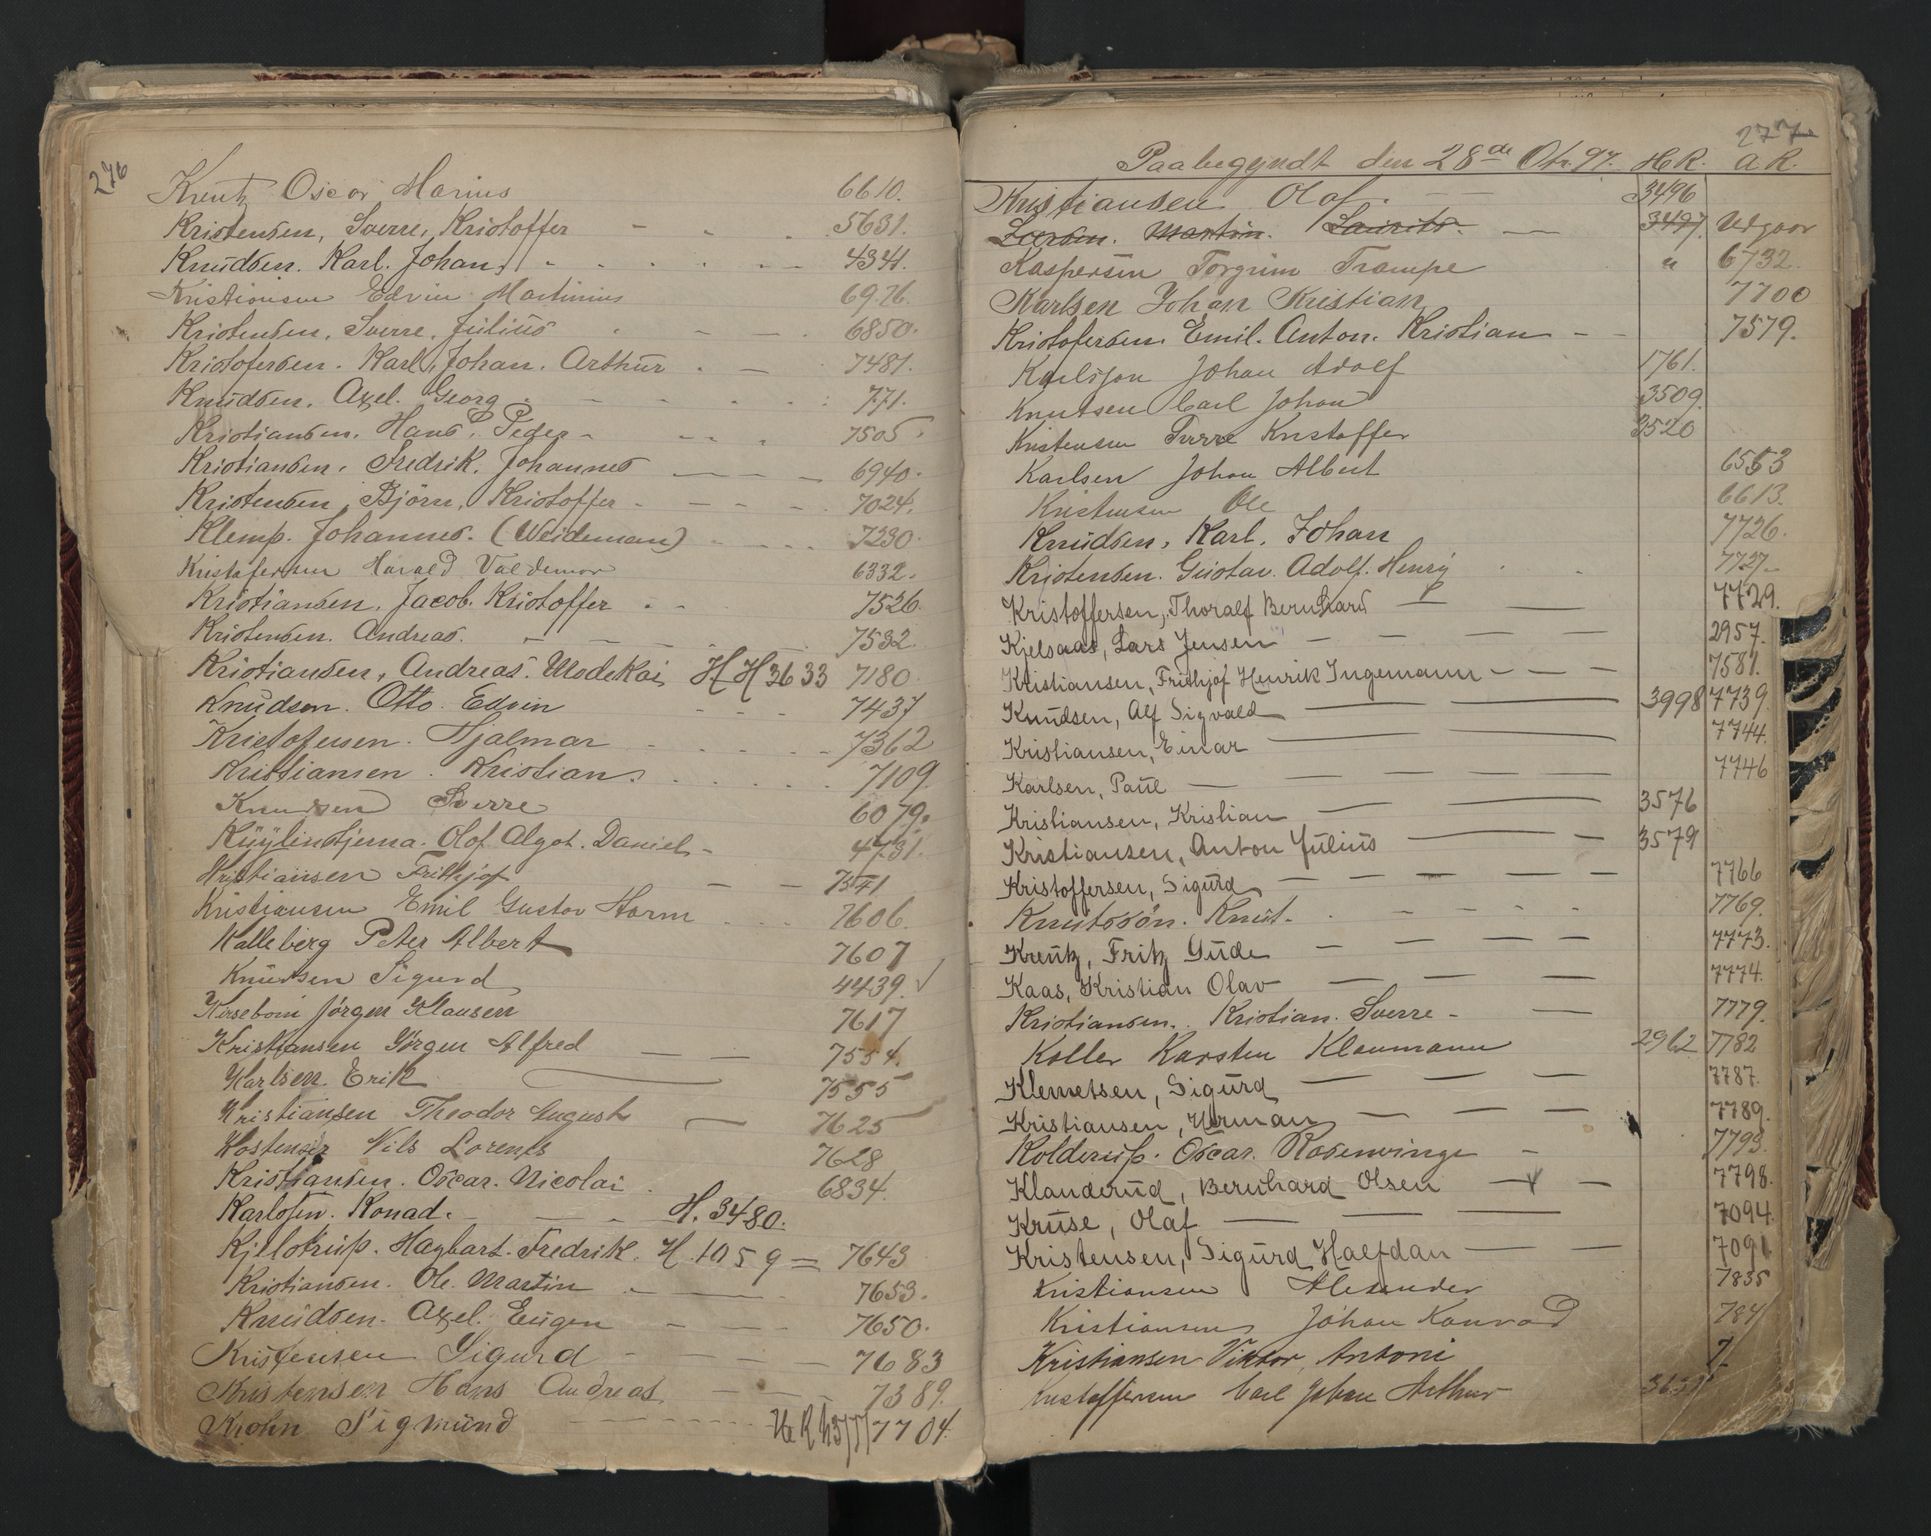 276
Kreutz Oscar Marius 6610.
Kristensen, Sverre, Kristoffer 5631.
Knudsen. Karl. Johan. 4341.
Kristiansen Edvin Martinius 6976.
Kristensen, Sverre, Julius 6850.
Kristofersen. Karl. Johan. Arthur 7481.
Knudsen. Axel. Georg. 771.
Kristiansen. Hans. Peder 7505.
Kristiansen. Fredrik. Johannes 6940.
Kristensen, Björn, Kristoffer 7024.
Klemp. Johannes. (Weideman) 7230.
Kristofersen Harald Valdemar 6332.
Kristiansen, Jacob. Kristoffer 7526
Kristensen. Andreas. 7532.
Kristiansen, Andreas. Modekai H H 3633 7180.
Knudsen. Otto. Edvin 7437
Kristofersen. Hjalmar 7362
Kristiansen. Kristian. 7109.
Knudsen Sverre 6079.
Küylenstjerna. Olof. Algot. Daniel 4731.
Kristiansen Frithjof 7541
Kristiansen Emil Gustav Harm 7606.
Kalleberg Peter Albert 7607
Knudsen Sigurd 4439.
Jörgen Klausen 7617
Kristiansen Jörgen Alfred 7554.
Karlsen Erik 7555
Kristiansen Theodor August 7625
Nils Lorents 7628
Kristiansen. Oscar. Nicolai 6834.
Karlsen. Konrad. H. 3480.
Kjelstrup. Hagbart. Fredrik. H. 1059 = 7643
Kristiansen. Ole. Martin 7653.
Knudsen. Axel. Eugen 7650.
Kristensen Sigurd 7683
Kristensen Hans Andreas 7389.
Krohn Sigmund 7704.
277
Paabegyndt den 28de Obr. 97. H.R. A.R.
Kristiansen Olaf. 3496
Iversen. Martin. Laurits. 3497. Udgaar
Kaspersen Torgrim Trampe " 6732.
Karlsen Johan Kristian 7700
Kristofersen. Emil. Anton. Kristian 7579.
Karlsson Johan Adolf 1761.
Knutsen Carl Johan 3509.
Kristensen Sverre Kristoffer 3520
Karlsen Johan Albert 6553
Kristensen Ole 6613.
Knudsen, Karl. Johan 7726.
Kristensen. Gustav. Adolf. Henry 7727.
Kristoffersen, Thoralf Bernhard 7729.
Kjelsaas, Lars Jensen 2957.
Kristiansen, Frithjof Henrik Ingemann 7581.
Knudsen, Alf Sigvald 3998 7739.
Kristiansen, Einar 7744.
Karlsen, Paul 7746
Kristiansen, Kristian 3576
Kristiansen, Anton Julius 3579
Kristoffersen, Sigurd 7766
Knutssön. Knut. 7769.
Kreutz, Fritz Gude 7773.
Kaas, Kristian Olav 7774.
Kristiansen. Kristian. Sverre 7779.
Koller Karsten Klaumann 2962 7782
Klemetsen, Sigurd 7787.
Kristiansen, Herman 7789.
Kolderup. Oscar. Rosenvinge 7793.
Klanderud, Bernhard Olsen 7798.
Kruse, Olaf 7094.
Kristensen, Sigurd Halfdan 7091
Kristiansen Alexander 7835
Kristiansen Johan Konrad 784
Kristiansen Viktor Antoni 7
Kristoffersen Carl Johan Arthur